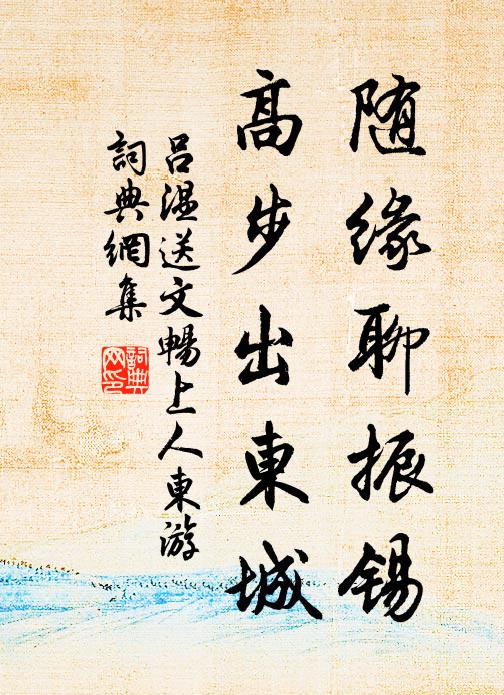 随缘聊振锡
高步出東城
吕温送文暢上人東游
詞典網集
詞典
网印